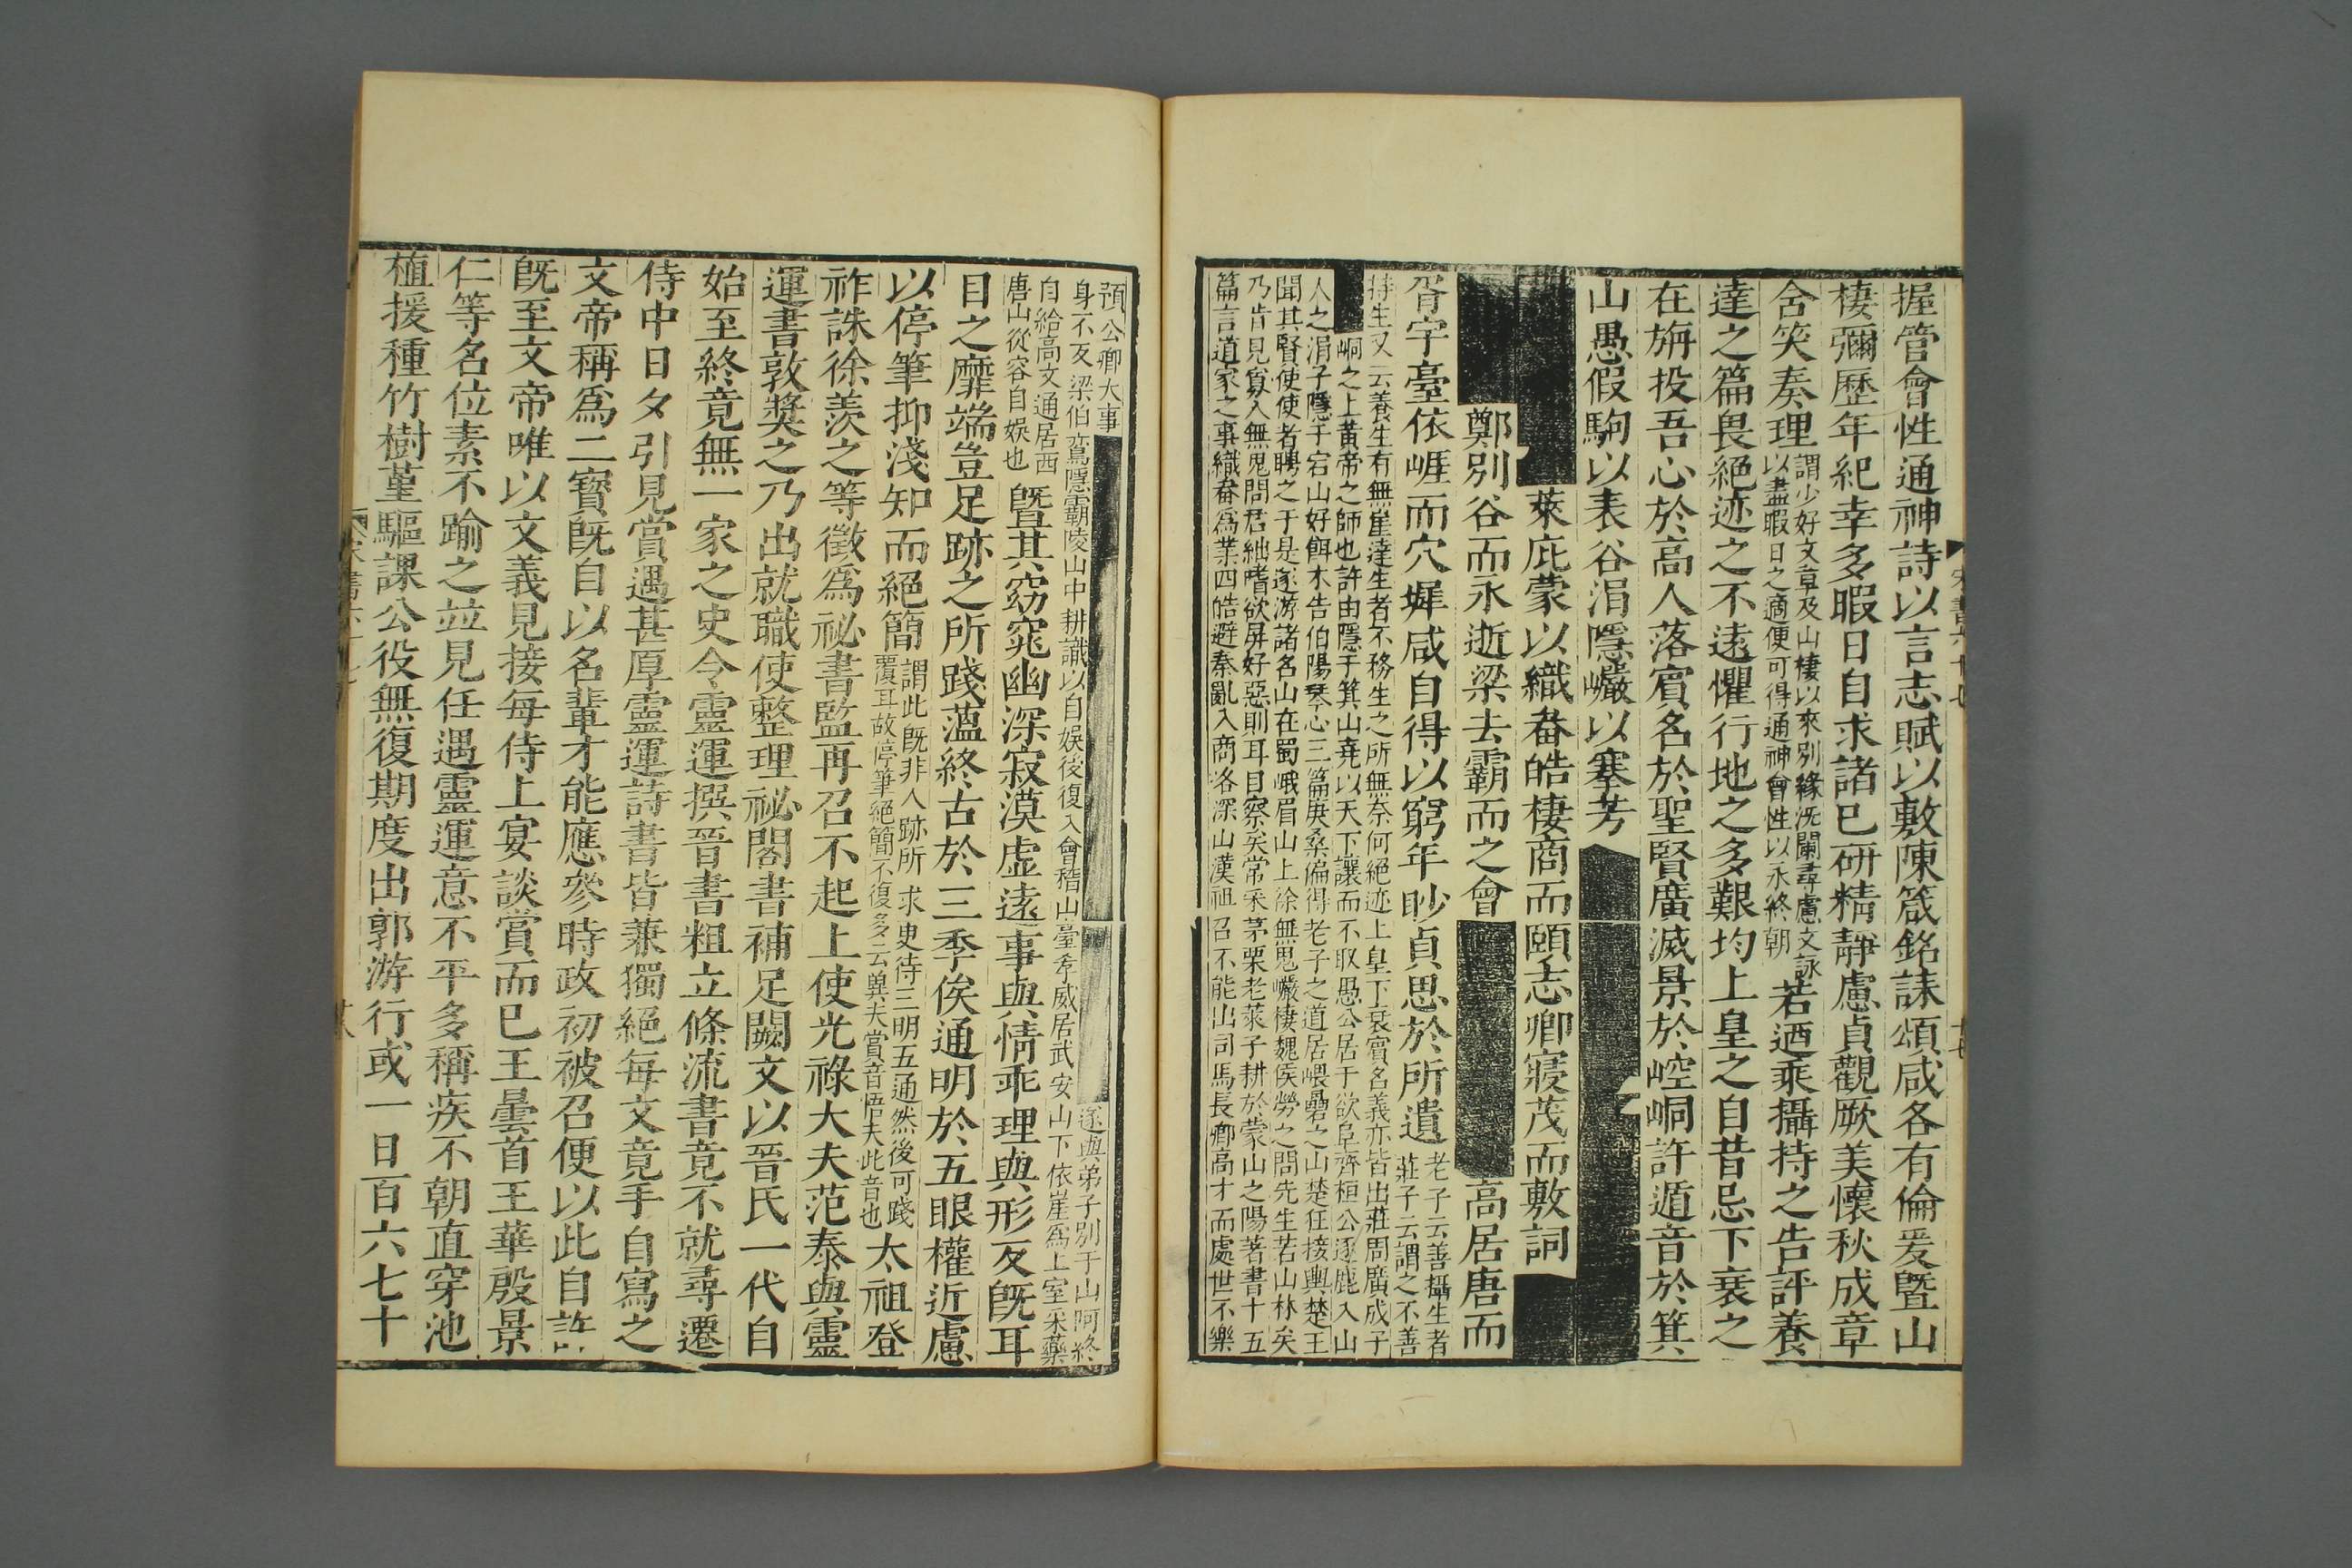 握管會性通神詩以言志賦以敷陳箴銘誄頌咸各有倫爰暨山
棲彌歷年紀幸多暇日自求諸已研精靜慮貞觀厥美懷秋成章
含笑奏理
謂少好文章及山棲以來別緣旣闌尋慮文詠
以盡暇日之適便可得通神會性以永終朝
若迺乘攝持之告評養
達之篇畏絕迹之不遠懼行地之多艱均上皇之自昔忌下衰之
在旃投吾心於高人落賓名於聖賢廣滅景於崆峒許遁音於箕
山愚假駒以表谷涓隱巖以搴芳
萊庇蒙以織畚皓棲商而頤志卿寢茂而敷詞
鄭別谷而永逝梁去霸而之會
高居唐而
胥宇臺依崕而穴墀咸自得以窮年眇貞思於所遺
老子云善攝生者
莊子云謂之不善
持生又云養生有無崖達生者不務生之所無奈何絕迹上皇下衰賓名義亦皆出莊周廣成子
峒之上黃帝之師也許由隱于箕山堯以天下讓而不取愚公居于欲阜齊桓公逐鹿入山
人之涓子隱于宕山好餌木告伯陽琴心三篇庚桑偏得老子之道居嵔壘之山楚狂接輿楚王
聞其賢使使者聘之于是遂游諸名山在蜀峨眉山上徐無鬼巖棲魏侯勞之問先生苦山林矣
乃肯見寡人無鬼問君絀嗜欲屏好惡則耳目察矣常采茅栗老萊子耕於蒙山之陽著書十五
篇言道家之事織畚爲業四皓避秦亂入商洛深山漢祖召不能出司馬長卿高才而處世不樂
預公卿大事
遂與弟子別于山阿終
身不反梁伯鸞隱霸陵山中耕識以自娛後復入會稽山臺孝威居武安山下依崖爲土室采藥
自給高文通居西
唐山從容自娛也
曁其窈窕幽深寂漠虛遠事與情乖理與形反旣耳
目之靡端豈足跡之所踐薀終古於三季俟通明於五眼權近慮
以停筆抑淺知而絕簡
謂此旣非人跡所求更待三明五通然後可踐
覆耳故停筆絕簡不復多云冀夫賞音悟夫此音也
太祖登
祚誅徐羨之等徵爲祕書監再召不起上使光祿大夫范泰與靈
運書敦奬之乃出就職使整理祕閣書補足闕文以晉氏一代自
始至終竟無一家之史令靈運撰晉書粗立條流書竟不就尋遷
侍中日夕引見賞遇甚厚靈運詩書皆兼獨絕每文竟手自寫之
文帝稱爲二寳旣自以名輩才能應參時政初被召便以此自許
旣至文帝唯以文義見接每侍上宴談賞而已王曇首王華殷景
仁等名位素不踰之並見任遇靈運意不平多稱疾不朝直穿池
植援種竹樹堇驅課公役無復期度出郭游行或一日百六七十